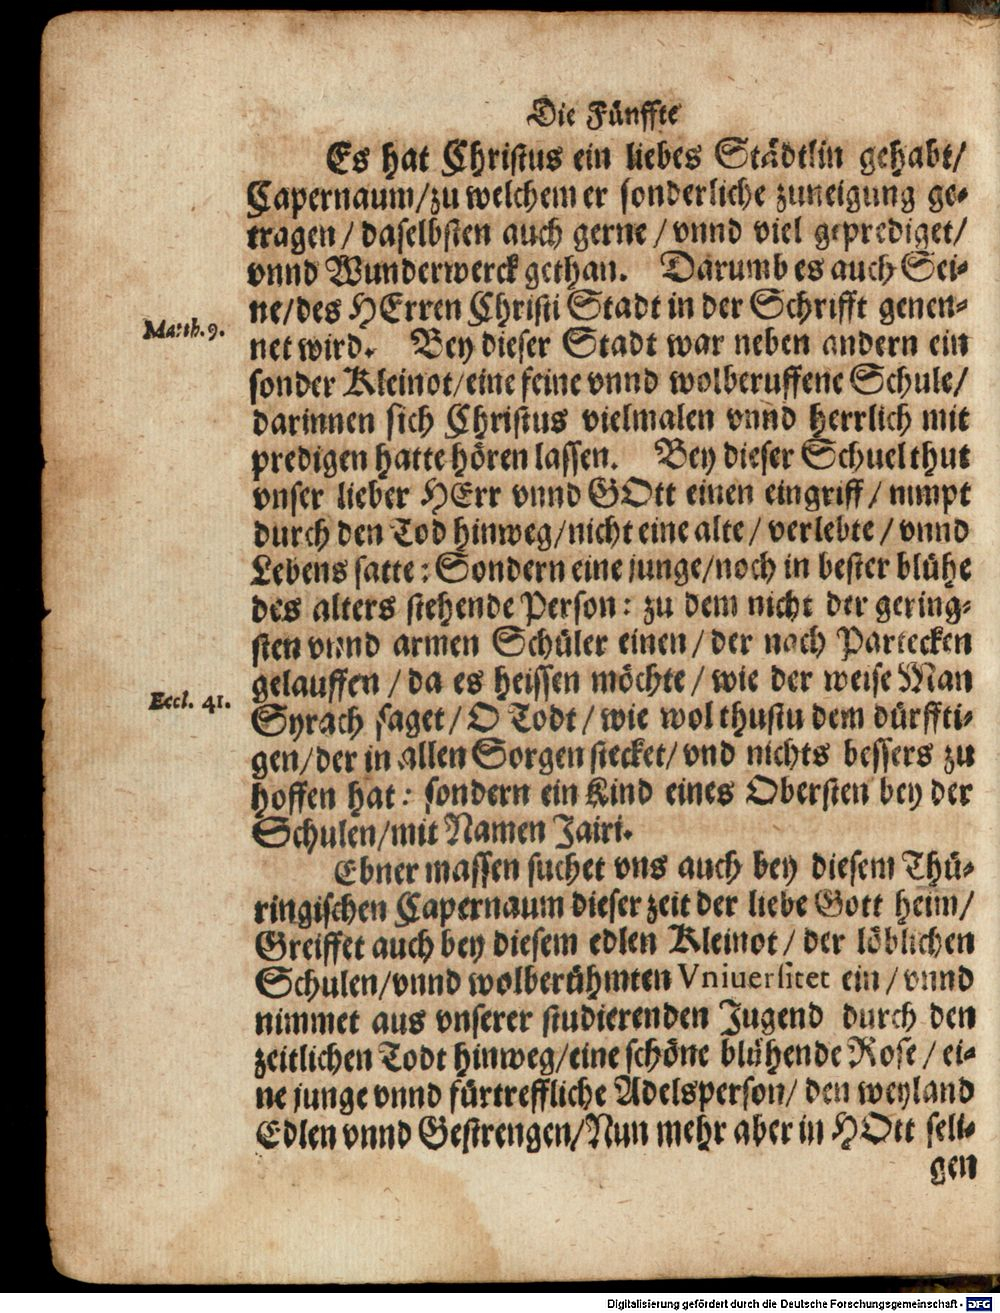 Die Fünffte
Es hat Christus ein liebes Städtlin gehabt/
Capernaum/zu welchem er sonderliche zuneigung ge-
tragen / daselbsten auch gerne / vnnd viel geprediget/
vnnd Wunderwerck gethan. Darumb es auch Sei-
ne/des HErren Christi Stadt in der Schrifft genen-
Matth. 9.
net wird. Bey dieser Stadt war neben andern ein
sonder Kleinot/eine feine vnnd wolberuffene Schule/
darinnen sich Christus vielmalen vnnd herrlich mit
predigen hatte hören lassen. Bey dieser Schuel thut
vnser lieber HErr vnnd GOtt einen eingriff / nimpt
durch den Tod hinweg/nicht eine alte / verlebte / vnnd
Lebens satte: Sondern eine junge/noch in bester blühe
des alters stehende Person: zu dem nicht der gering-
sten vnnd armen Schüler einen / der nach Partecken
gelauffen / da es heissen möchte / wie der weise Man
Eccl. 41.
Syrach saget/ O Todt / wie wol thustu dem dürffti-
gen/der in allen Sorgen stecket/ vnd nichts bessers zu
hoffen hat: sondern ein Kind eines Obersten bey der
Schulen/mit Namen Jairi.
Ebner massen suchet vns auch bey diesem Thü-
ringischen Capernaum dieser zeit der liebe Gott heim/
Greiffet auch bey diesem edlen Kleinot / der löblichen
Schulen/vnnd wolberühmten Vniuersitet ein / vnnd
nimmet aus vnserer studierenden Jugend durch den
zeitlichen Todt hinweg/eine schöne blühende Rose / ei-
ne junge vnnd fürtreffliche Adelsperson/ den weyland
Edlen vnnd Gestrengen/Nun mehr aber in HOtt seli-
gen
Digitalisierung gefördert durch die Deutsche Forschungsgemeinschaft - DFG